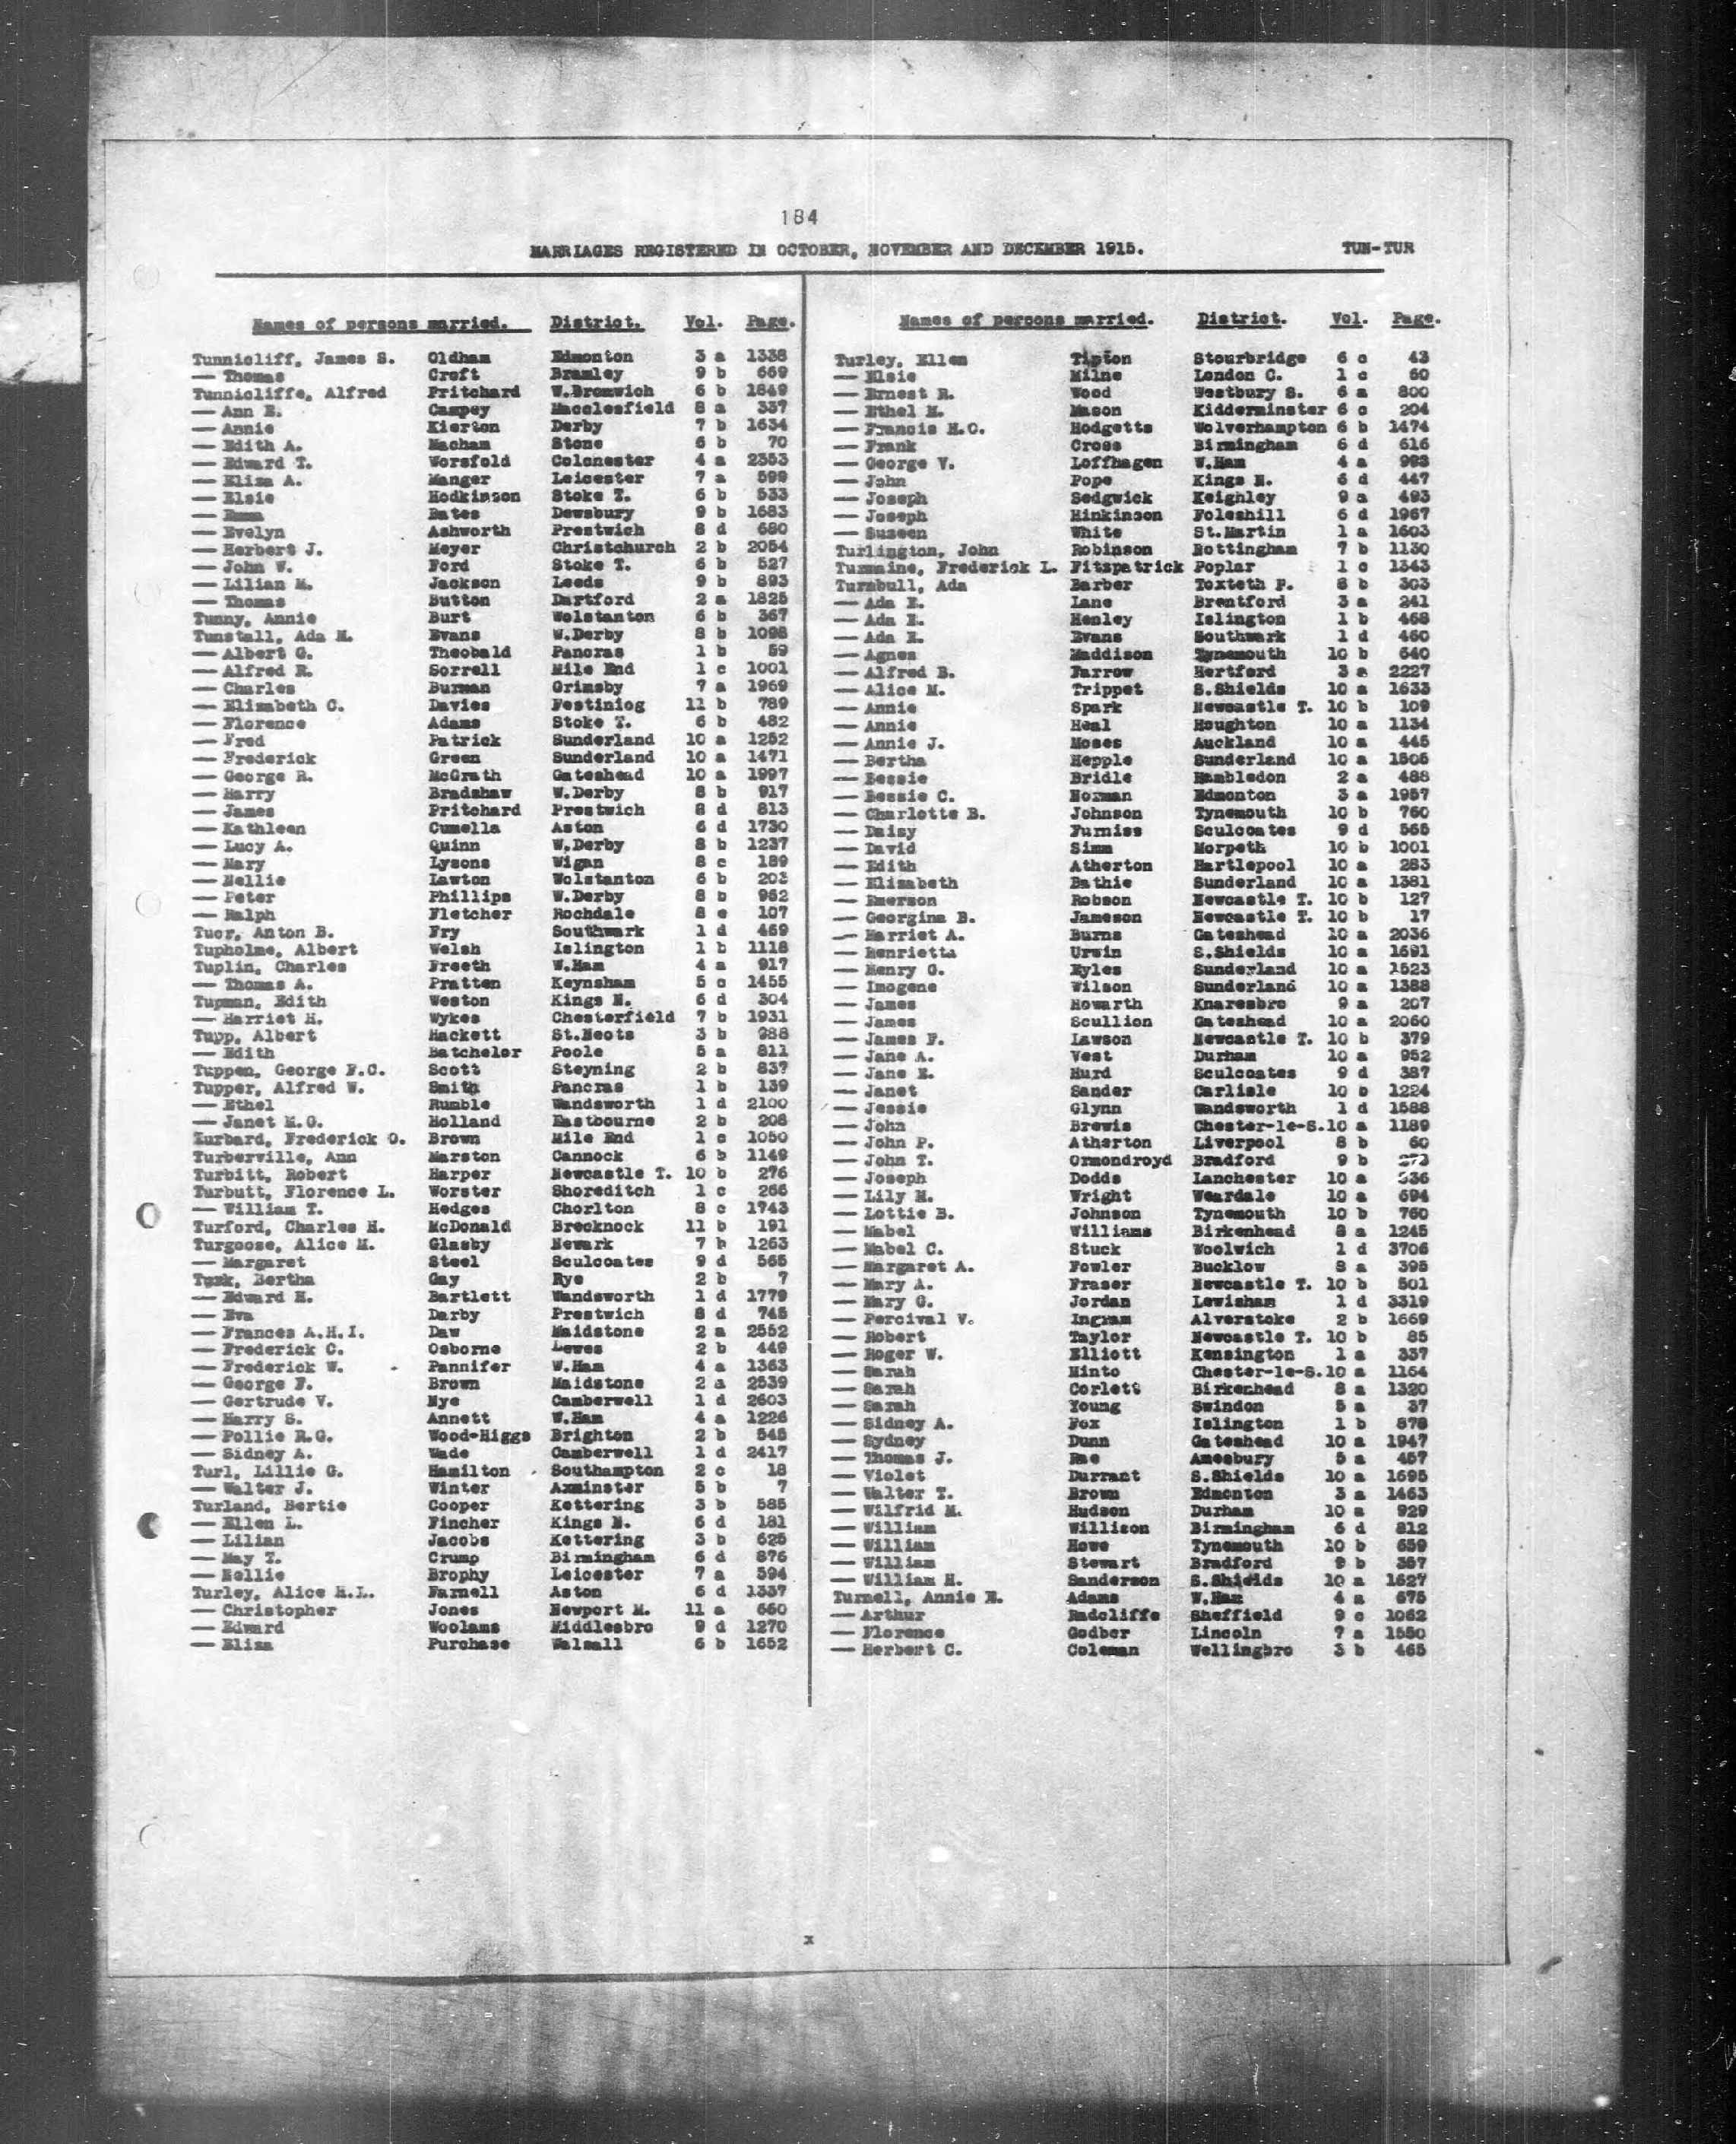 184
MARRIAGES REGISTERED IN OCTOBER, NOVEMBER AND DECEMBER 1915. TUN-TUR
Names of persons married. District. Vol. Page.
Tunnicliff, James S. Oldham Edmonton 3 a 1338
— Thomas Croft Bramley 9 b 669
Tunnicliffe, Alfred Pritchard W.Bromwich 6 b 1849
— Ann E. Campey Macclesfield 8 a 337
— Annie Kierton Derby 7 b 1634
— Edith A. Macham Stone 6 b 70
— Edward T. Worsfold Colchester 4 a 2353
— Eliza A. Manger Leicester 7 a 599
— Elsie Hodkinson Stoke T. 6 b 533
— Emma Bates Dewsbury 9 b 1683
— Evelyn Ashworth Prestwich 8 d 680
— Herbert J. Meyer Christchurch 2 b 2054
— John W. Ford Stoke T. 6 b 527
— Lilian M. Jackson Leeds 9 b 893
— Thomas Button Dartford 2 a 1825
Tunny, Annie Burt Wolstanton 6 b 367
Tunstall, Ada M. Evans W.Derby 8 b 1098
— Albert G. Theobald Pancras 1 b 59
— Alfred R. Sorrell Mile End 1 c 1001
— Charles Burman Grimsby 7 a 1969
— Elizabeth C. Davies Festiniog 11 b 789
— Florence Adams Stoke T. 6 b 482
— Fred Patrick Sunderland 10 a 1252
— Frederick Green Sunderland 10 a 1471
— George R. McGrath Gateshead 10 a 1997
— Harry Bradshaw W.Derby 8 b 917
— James Pritchard Prestwich 8 d 813
— Kathleen Cumella Aston 6 d 1730
— Lucy A. Quinn W.Derby 8 b 1237
— Mary Lysons Wigan 8 c 189
— Nellie Lawton Wolstanton 6 b 203
— Peter Phillips W.Derby 8 b 952
— Ralph Fletcher Rochdale 8 e 107
Tuor, Anton B. Fry Southwark 1 d 469
Tupholme, Albert Welsh Islington 1 b 1118
Tuplin, Charles Freeth W.Ham 4 a 917
— Thomas A. Pratten Keynsham 5 c 1455
Tupman, Edith Weston Kings N. 6 d 304
— Harriet H. Wykes Chesterfield 7 b 1931
Tupp, Albert Hackett St.Neots 3 b 988
— Edith Batchelor Poole 5 a 811
Tuppen, George F.C. Scott Steyning 2 b 837
Tupper, Alfred W. Smith Pancras 1 b 139
— Ethel Rumble Wandsworth 1 d 2100
— Janet M.G. Holland Eastbourne 2 b 208
Turbard, Frederick O. Brown Mile End 1 c 1050
Turberville, Ann Marston Cannock 6 b 1149
Turbitt, Robert Harper Newcastle T. 10 b 276
Turbutt, Florence L. Worster Shoreditch 1 c 266
— William T. Hedges Chorlton 8 c 1743
Turford, Charles H. McDonald Brecknock 11 b 191
Turgoose, Alice M. Glasby Newark 7 b 1263
— Margaret Steel Sculcoates 9 d 565
Turk, Bertha Gay Rye 2 b 7
— Edward H. Bartlett Wandsworth 1 d 1779
— Eva Darby Prestwich 8 d 745
— Frances A.H.I. Daw Maidstone 2 a 2552
— Frederick C. Osborne Lewes 2 b 449
— Frederick W. Pannifer W.Ham 4 a 1363
— George F. Brown Maidstone 2 a 2539
— Gertrude V. Nye Camberwell 1 d 2603
— Harry S. Annett W.Ham 4 a 1226
— Pollie R.G. Wood-Higgs Brighton 2 b 545
— Sidney A. Wade Camberwell 1 d 2417
Turl, Lillie G. Hamilton Southampton 2 c 18
— Walter J. Winter Axminster 5 b 7
Turland, Bertie Cooper Kettering 3 b 585
— Ellen L. Fincher Kings N. 6 d 181
— Lilian Jacobs Kettering 3 b 625
— May T. Crump Birmingham 6 d 876
— Nellie Brophy Leicester 7 a 594
Turley, Alice H.L. Farnell Aston 6 d 1337
— Christopher Jones Newport M. 11 a 660
— Edward Woolams Middlesbro 9 d 1270
— Eliza Purchase Walsall 6 b 1652
Names of persons married. District. Vol. Page.
Turley, Ellen Tipton Stourbridge 6 c 43
— Elsie Milne London C. 1 c 60
— Ernest R. Wood Westbury S. 6 a 800
— Ethel M. Mason Kidderminster 6 c 204
— Francis H.C. Hodgetts Wolverhampton 6 b 1474
— Frank Cross Birmingham 6 d 616
— George V. Loffhagen W.Ham 4 a 993
— John Pope Kings N. 6 d 447
— Joseph Sedgwick Keighley 9 a 493
— Joseph Hinkinson Foleshill 6 d 1967
— Suseen White St.Martin 1 a 1603
Turlington, John Robinson Nottingham 7 b 1130
Turmaine, Frederick L. Fitzpatrick Poplar 1 c 1343
Turnbull, Ada Barber Toxteth P. 8 b 303
— Ada E. Lane Brentford 3 a 241
— Ada E. Henley Islington 1 b 468
— Ada R. Evans Southwark 1 d 460
— Agnes Maddison Tynemouth 10 b 640
— Alfred B. Farrow Hertford 3 a 2227
— Alice M. Trippet S.Shields 10 a 1633
— Annie Spark Newcastle T. 10 b 109
— Annie Heal Houghton 10 a 1134
— Annie J. Moses Auckland 10 a 445
— Bertha Hepple Sunderland 10 a 1505
— Bessie Bridle Hambledon 2 a 488
— Bessie C. Norman Edmonton 3 a 1957
— Charlotte B. Johnson Tynemouth 10 b 760
— Daisy Furniss Sculcoates 9 d 565
— David Simm Morpeth 10 b 1001
— Edith Atherton Hartlepool 10 a 283
— Elizabeth Bathie Sunderland 10 a 1381
— Emerson Robson Newcastle T. 10 b 127
— Georgina B. Jameson Newcastle T. 10 b 17
— Harriet A. Burns Gateshead 10 a 2036
— Henrietta Urwin S.Shields 10 a 1691
— Henry G. Eyles Sunderland 10 a 1523
— Imogene Wilson Sunderland 10 a 1388
— James Howarth Knaresbro 9 a 207
— James Scullion Gateshead 10 a 2060
— James F. Lawson Newcastle T. 10 b 379
— Jane A. Vest Durham 10 a 952
— Jane E. Hurd Sculcoates 9 d 387
— Janet Sander Carlisle 10 b 1224
— Jessie Glynn Wandsworth 1 d 1588
— John Brewis Chester-le-S. 10 a 1189
— John P. Atherton Liverpool 8 b 60
— John T. Ormondroyd Bradford 9 b
— Joseph Dodds Lanchester 10 a 336
— Lily M. Wright Weardale 10 a 694
— Lottie B. Johnson Tynemouth 10 b 760
— Mabel Williams Birkenhead 8 a 1245
— Mabel C. Stuck Woolwich 1 d 3706
— Margaret A. Fowler Bucklow 8 a 395
— Mary A. Fraser Newcastle T. 10 b 501
— Mary G. Jordan Lewisham 1 d 3319
— Percival V. Ingram Alverstoke 2 b 1669
— Robert Taylor Newcastle T. 10 b 85
— Roger W. Elliott Kensington 1 a 337
— Sarah Minto Chester-le-S. 10 a 1164
— Sarah Corlett Birkenhead 8 a 1320
— Sarah Young Swindon 5 a 37
— Sidney A. Fox Islington 1 b 878
— Sydney Dunn Gateshead 10 a 1947
— Thomas J. Rae Amesbury 5 a 457
— Violet Durrant S.Shields 10 a 1695
— Walter T. Brown Edmonton 3 a 1463
— Wilfrid M. Hudson Durham 10 a 929
— William Willison Birmingham 6 d 812
— William Howe Tynemouth 10 b 659
— William Stewart Bradford 9 b 357
— William H. Sanderson S.Shields 10 a 1627
Turnell, Annie E. Adams W.Ham 4 a 675
— Arthur Radcliffe Sheffield 9 c 1062
— Florence Godber Lincoln 7 a 1550
— Herbert C. Coleman Wellingbro 3 b 465
x